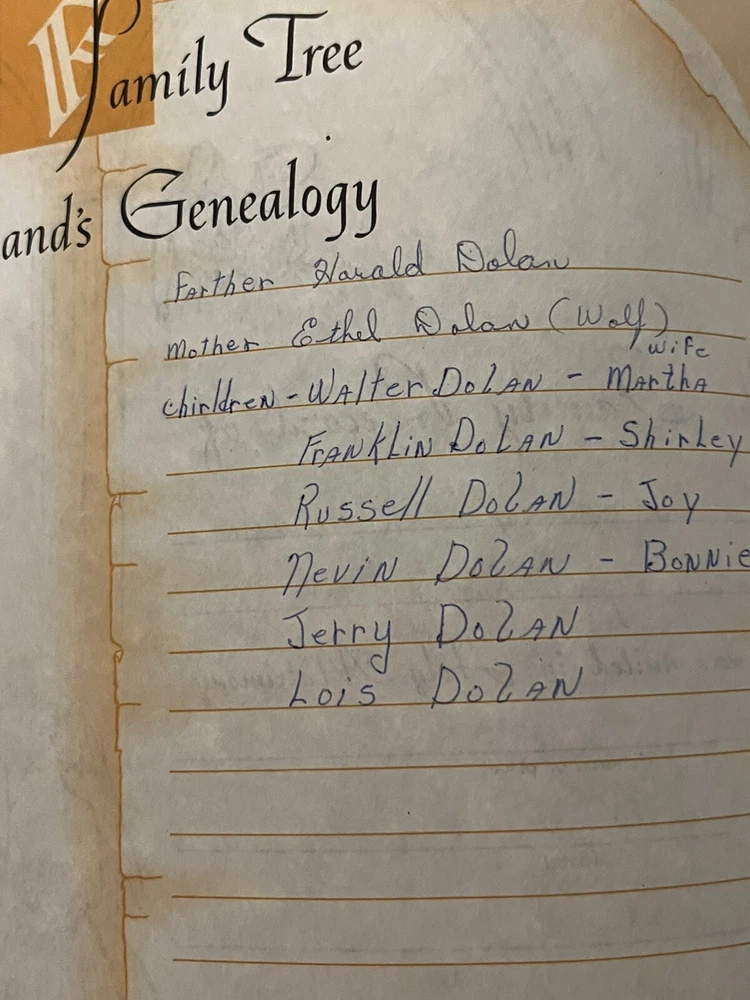 Family Tree
and's Genealogy
Farther Harald Dolan
Mother Ethel Dolan (Wolf)
wife
chirldren - WAlter DOLAN - MArthA
FrANKLiN DOLAN - Shirley
Russell DOLAN - Joy
NeviN DOLAN - BoNNie
Jerry DOLAN
Lois DOLAN